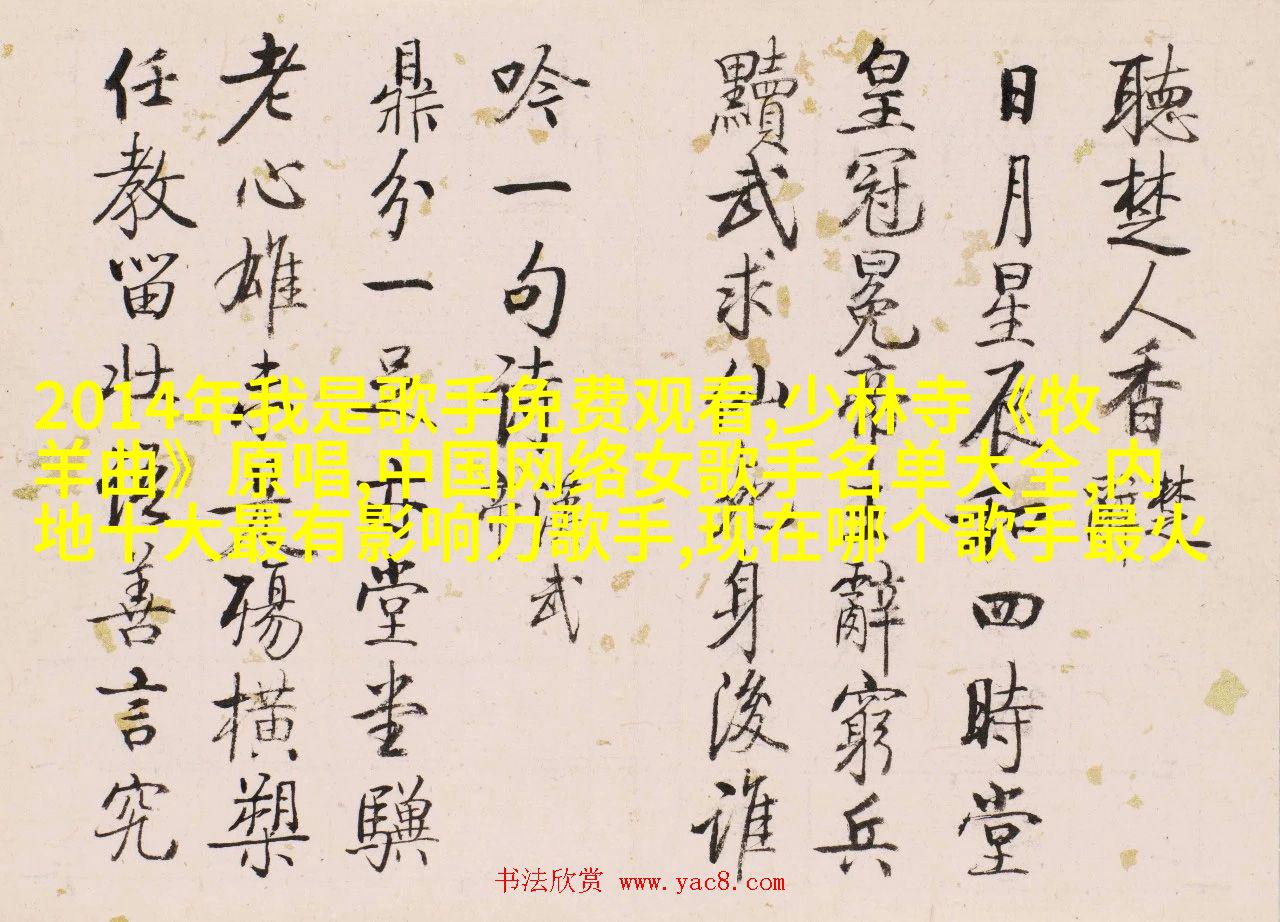 聽楚人香
日月星辰四時堂
皇冠冕帝辭窮兵
黷武求仙身後誰
吟一句詩
武
鼎分一堂堂驥
老心雄殤橫槊
任教留壯善言究
2014年我是歌手免费观看,少林寺《牧
羊曲》原唱,中国网络女歌手名单大全,内
地十大最有影响力歌手,现在哪个歌手最火
书法欣赏 www.yac8.com